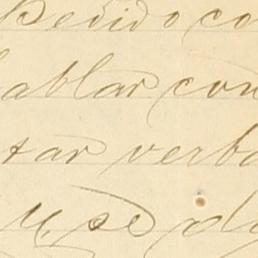 Pedido co
ablar con
tar verba
y se d